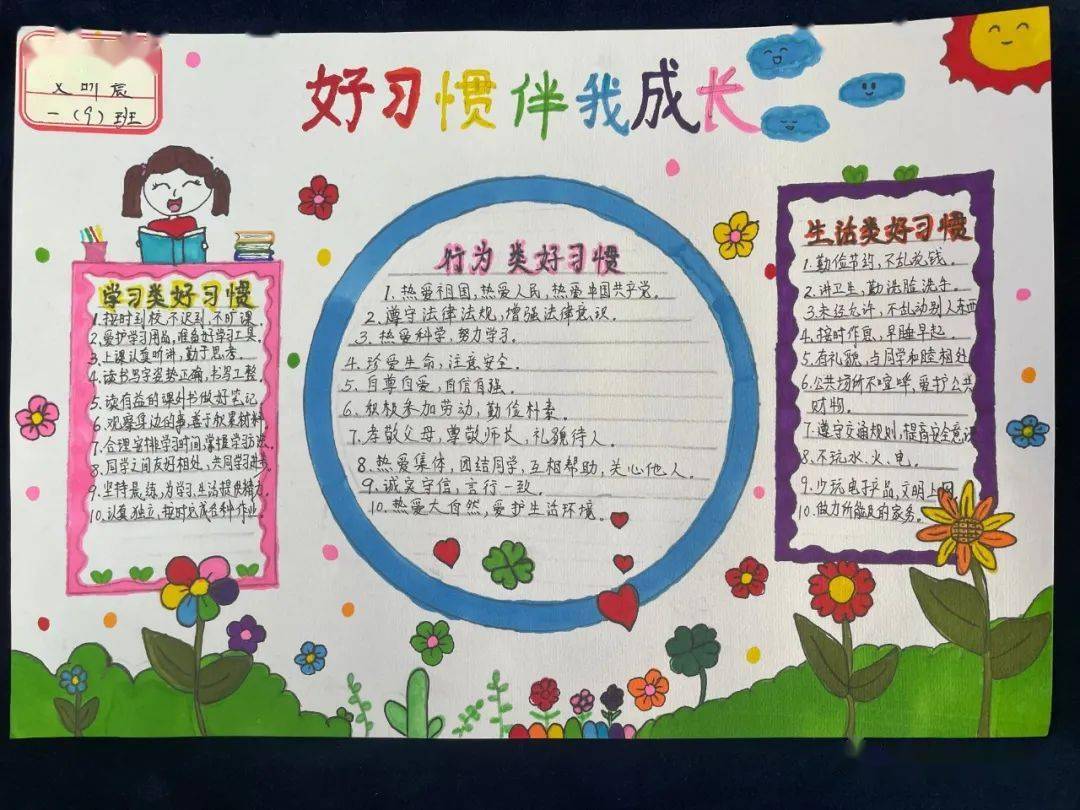 一（9）班
好习惯伴我成长
学习类好习惯
1.按时到校,不迟到,不旷课。
2.爱护学习用品,准备好学习工具。
3.上课认真听讲,勤于思考。
4.读书写字姿势正确,书写工整。
5.读有益的课外书做好笔记
6.观察身边的事,善于积累材料
7.合理安排学习时间,掌握学习方法。
8.同学之间友好相处,共同学习进步
9.坚持晨练,为学习、生活提供精力。
10.认真独立,按时完成各种作业
行为类好习惯
1.热爱祖国,热爱人民,热爱中国共产党。
2.遵守法律法规,增强法律意识。
3.热爱科学,努力学习。
4.珍爱生命,注意安全。
5.自尊自爱,自信自强。
6.积极参加劳动,勤俭朴素。
7.孝敬父母,尊敬师长,礼貌待人。
8.热爱集体,团结同学,互相帮助,关心他人。
9.诚实守信,言行一致。
10.热爱大自然,爱护生活环境。
生活类好习惯
1.勤俭节约,不乱花钱。
2.讲卫生,勤洗脸洗手。
3.未经允许,不乱动别人东西
4.按时作息,早睡早起。
5.有礼貌,与同学和睦相处
6.公共场所不喧哗,爱护公共
财物。
7.遵守交通规则,提高安全意识
8.不玩水、火、电。
9.少玩电子产品,文明上网
10.做力所能及的家务。